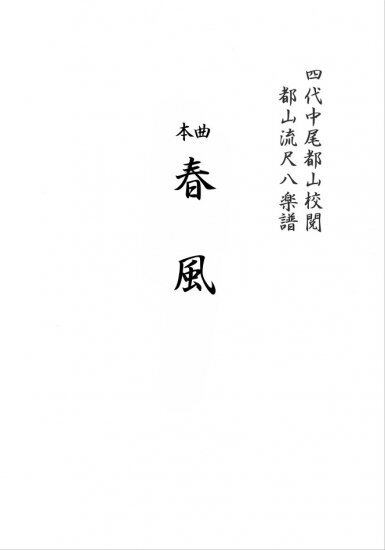 四代中尾都山校閲
都山流尺八楽譜
本曲
春風